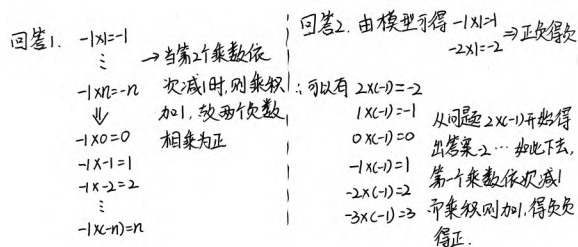 回答1. -1×1=-1
⋮
-1×n=-n
⇓
-1×0=0
-1×-1=1
-1×-2=2
⋮
-1×(-n)=n
→当第2个乘数依
次减1时,则乘积
加1,故两个负数
相乘为正
回答2. 由模型可得 -1×1=-1 ⇒正负得负
-2×1=-2
∴可以有 2×(-1)=-2
1×(-1)=-1
0×(-1)=0
-1×(-1)=1
-2×(-1)=2
-3×(-1)=3
从问题2×(-1)开始得
出答案-2…如此下去,
第一个乘数依次减1
而乘积则加1,得负负
得正.